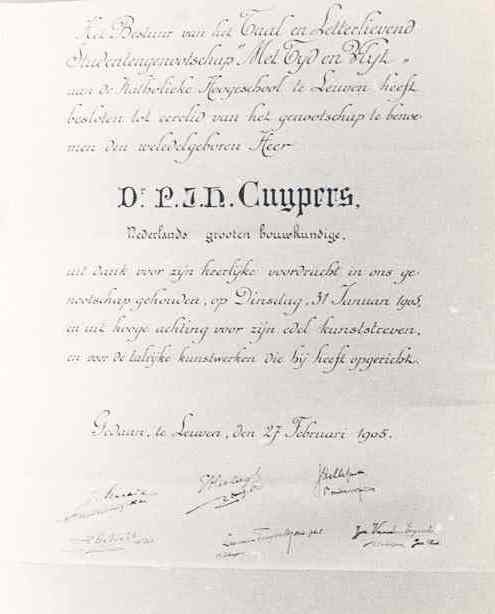 Het Bestuur van het Taal en Letterlievend
Studentengenootschap "Met Tyd en Vlyt"
aan de Katholieke Hoogeschool te Leuven heeft
besloten tot eerelid van het genootschap te benoe-
men den weledelgeboren Heer
Dr P.J.H. Cuypers,
Nederlands grooten bouwkundige,
uit dank voor zijn heerlijke voordracht in ons ge-
nootschap gehouden, op Dinsdag, 31 Januari 1905,
en uit hooge achting voor zijn edel kunststreven,
en voor de talrijke kunstwerken die hij heeft opgericht.
Gedaan, te Leuven, den 27 Februari 1905.